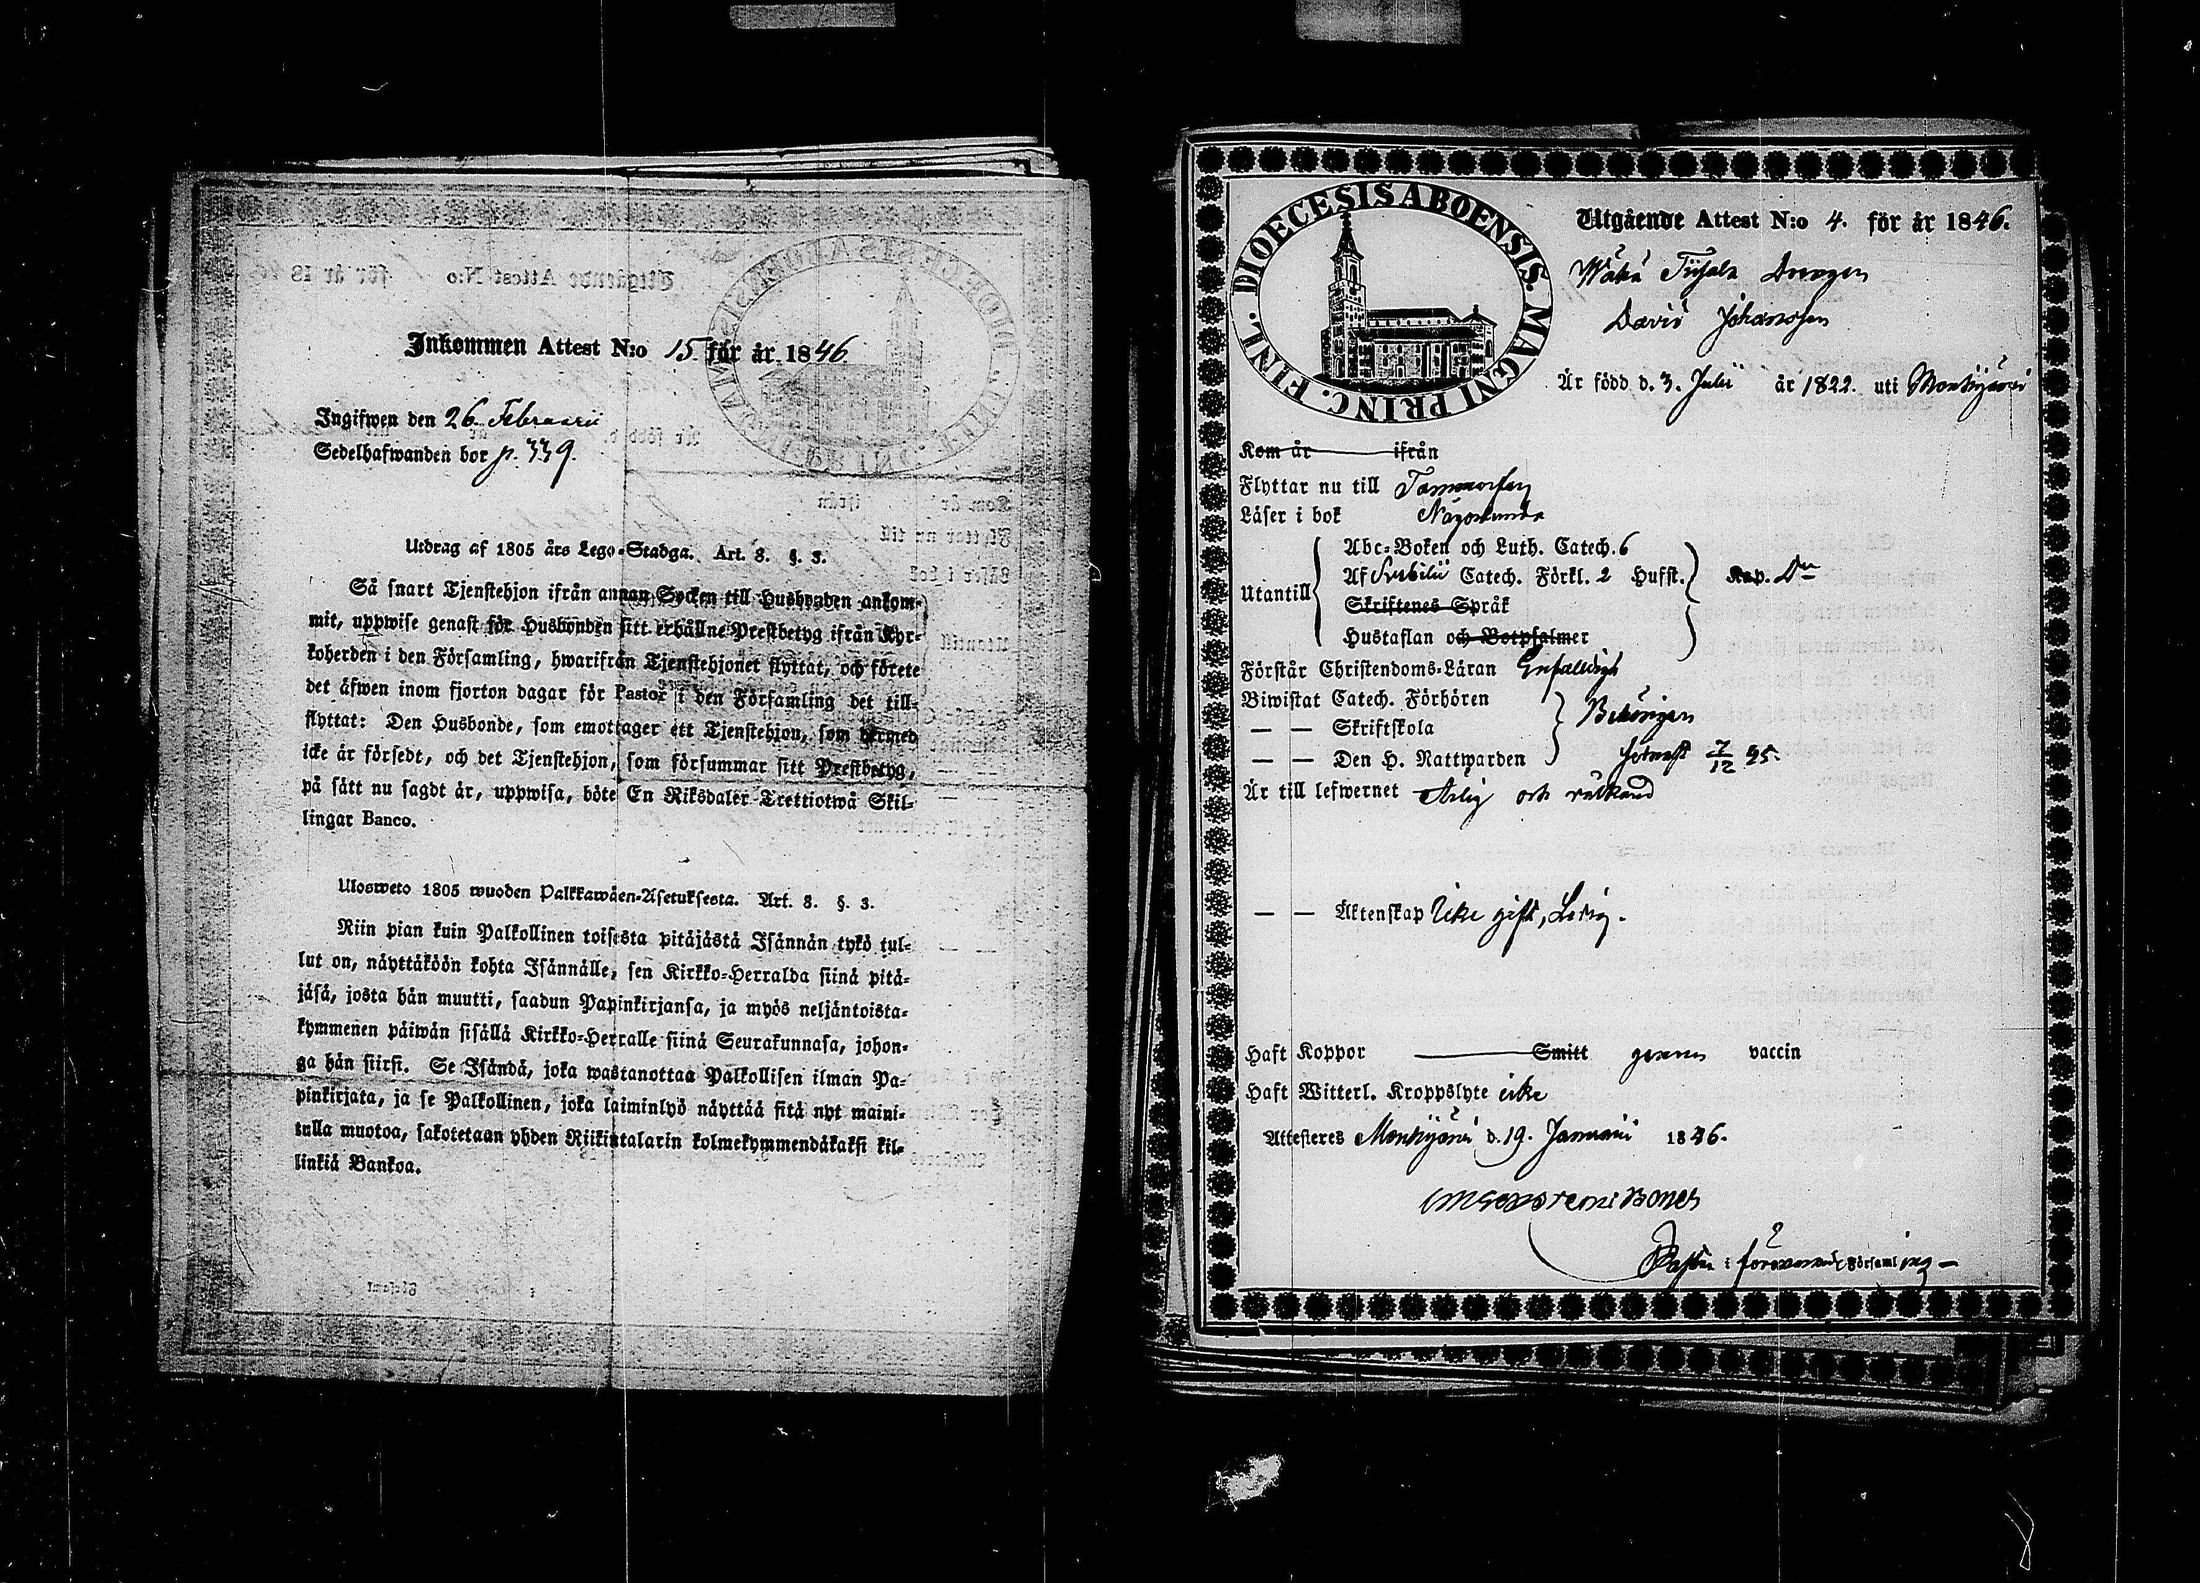 Inkommen Attest N:o 15 för år 1846
Ingifwen den 26 Februarii
Sedelhafwanden bor p. 339.
Utdrag af 1805 års Lego-Stadga. Art. 8. §. 3.
Så snart Tjenstehjon ifrån annan Socken till Husbonden ankom-
mit, uppwise genast för Husbonden sitt erhållne Prestbetyg ifrån Kyr-
koherden i den Församling, hwarifrån Tjenstehjonet flyttat, och förete
det äfwen inom fjorton dagar för Pastor i den Församling det till-
flyttat: Den Husbonde, som emottager ett Tjenstehjon, som dermed
icke är försedt, och det Tjenstehjon, som försummar sitt Prestbetyg,
på sätt nu sagdt är, uppwisa, böte En Riksdaler Trettiotwå Skil-
lingar Banco.
Ulosweto 1805 wuoden Palkkawäen-Asetuksesta. Art. 8. §. 3.
Niin pian kuin Palkollinen toisesta pitäjästä Isännän tykö tul-
lut on, näyttäköön kohta Isännälle, sen Kirkko-Herralda siinä pitä-
jäsä, josta hän muutti, saadun Papinkirjansa, ja myös neljäntoista-
kymmenen päiwän sisällä Kirkko-Herralle siinä Seurakunnasa, johon-
ga hän siirsi. Se Isändä, joka wastanottaa Palkollisen ilman Pa-
pinkirjata, ja se Palkollinen, joka laiminlyö näyttää sitä nyt maini-
tulla muotoa, sakotetaan yhden Riikintalarin kolmekymmendäkaksi kil-
linkiä Bankoa.
DIOECESIS ABOENSIS. MAGNI PRINC. FINL.
Utgående Attest N:o 4. för år 1846.
Drengen
David Johansson
Är född d. 3. Julii år 1822. uti Mouhijärvi
Kom år ifrån
Flyttar nu till Tammerfors
Läser i bok Någorlunda
Abc-Boken och Luth. Catech. 6
Utantill Af Svebilii Catech. Förkl. 2 Hufst. Kap.
Skriftenes Språk
Hustaflan och Botpsalmer
Förstår Christendoms-Läran Enfalldigt
Biwistat Catech. Förhören
— — Skriftskola Behörigen
— — Den H. Nattwarden 7/12 45.
Är till lefwernet Ärlig och
— — Äktenskap Icke gift, Ledig.
Haft Koppor Smitt genom vaccin
Haft Witterl. Kroppslyte icke
Attesteres Mouhijärvi d. 19. Januarii 1846.
Pastor i förenämnde Församling